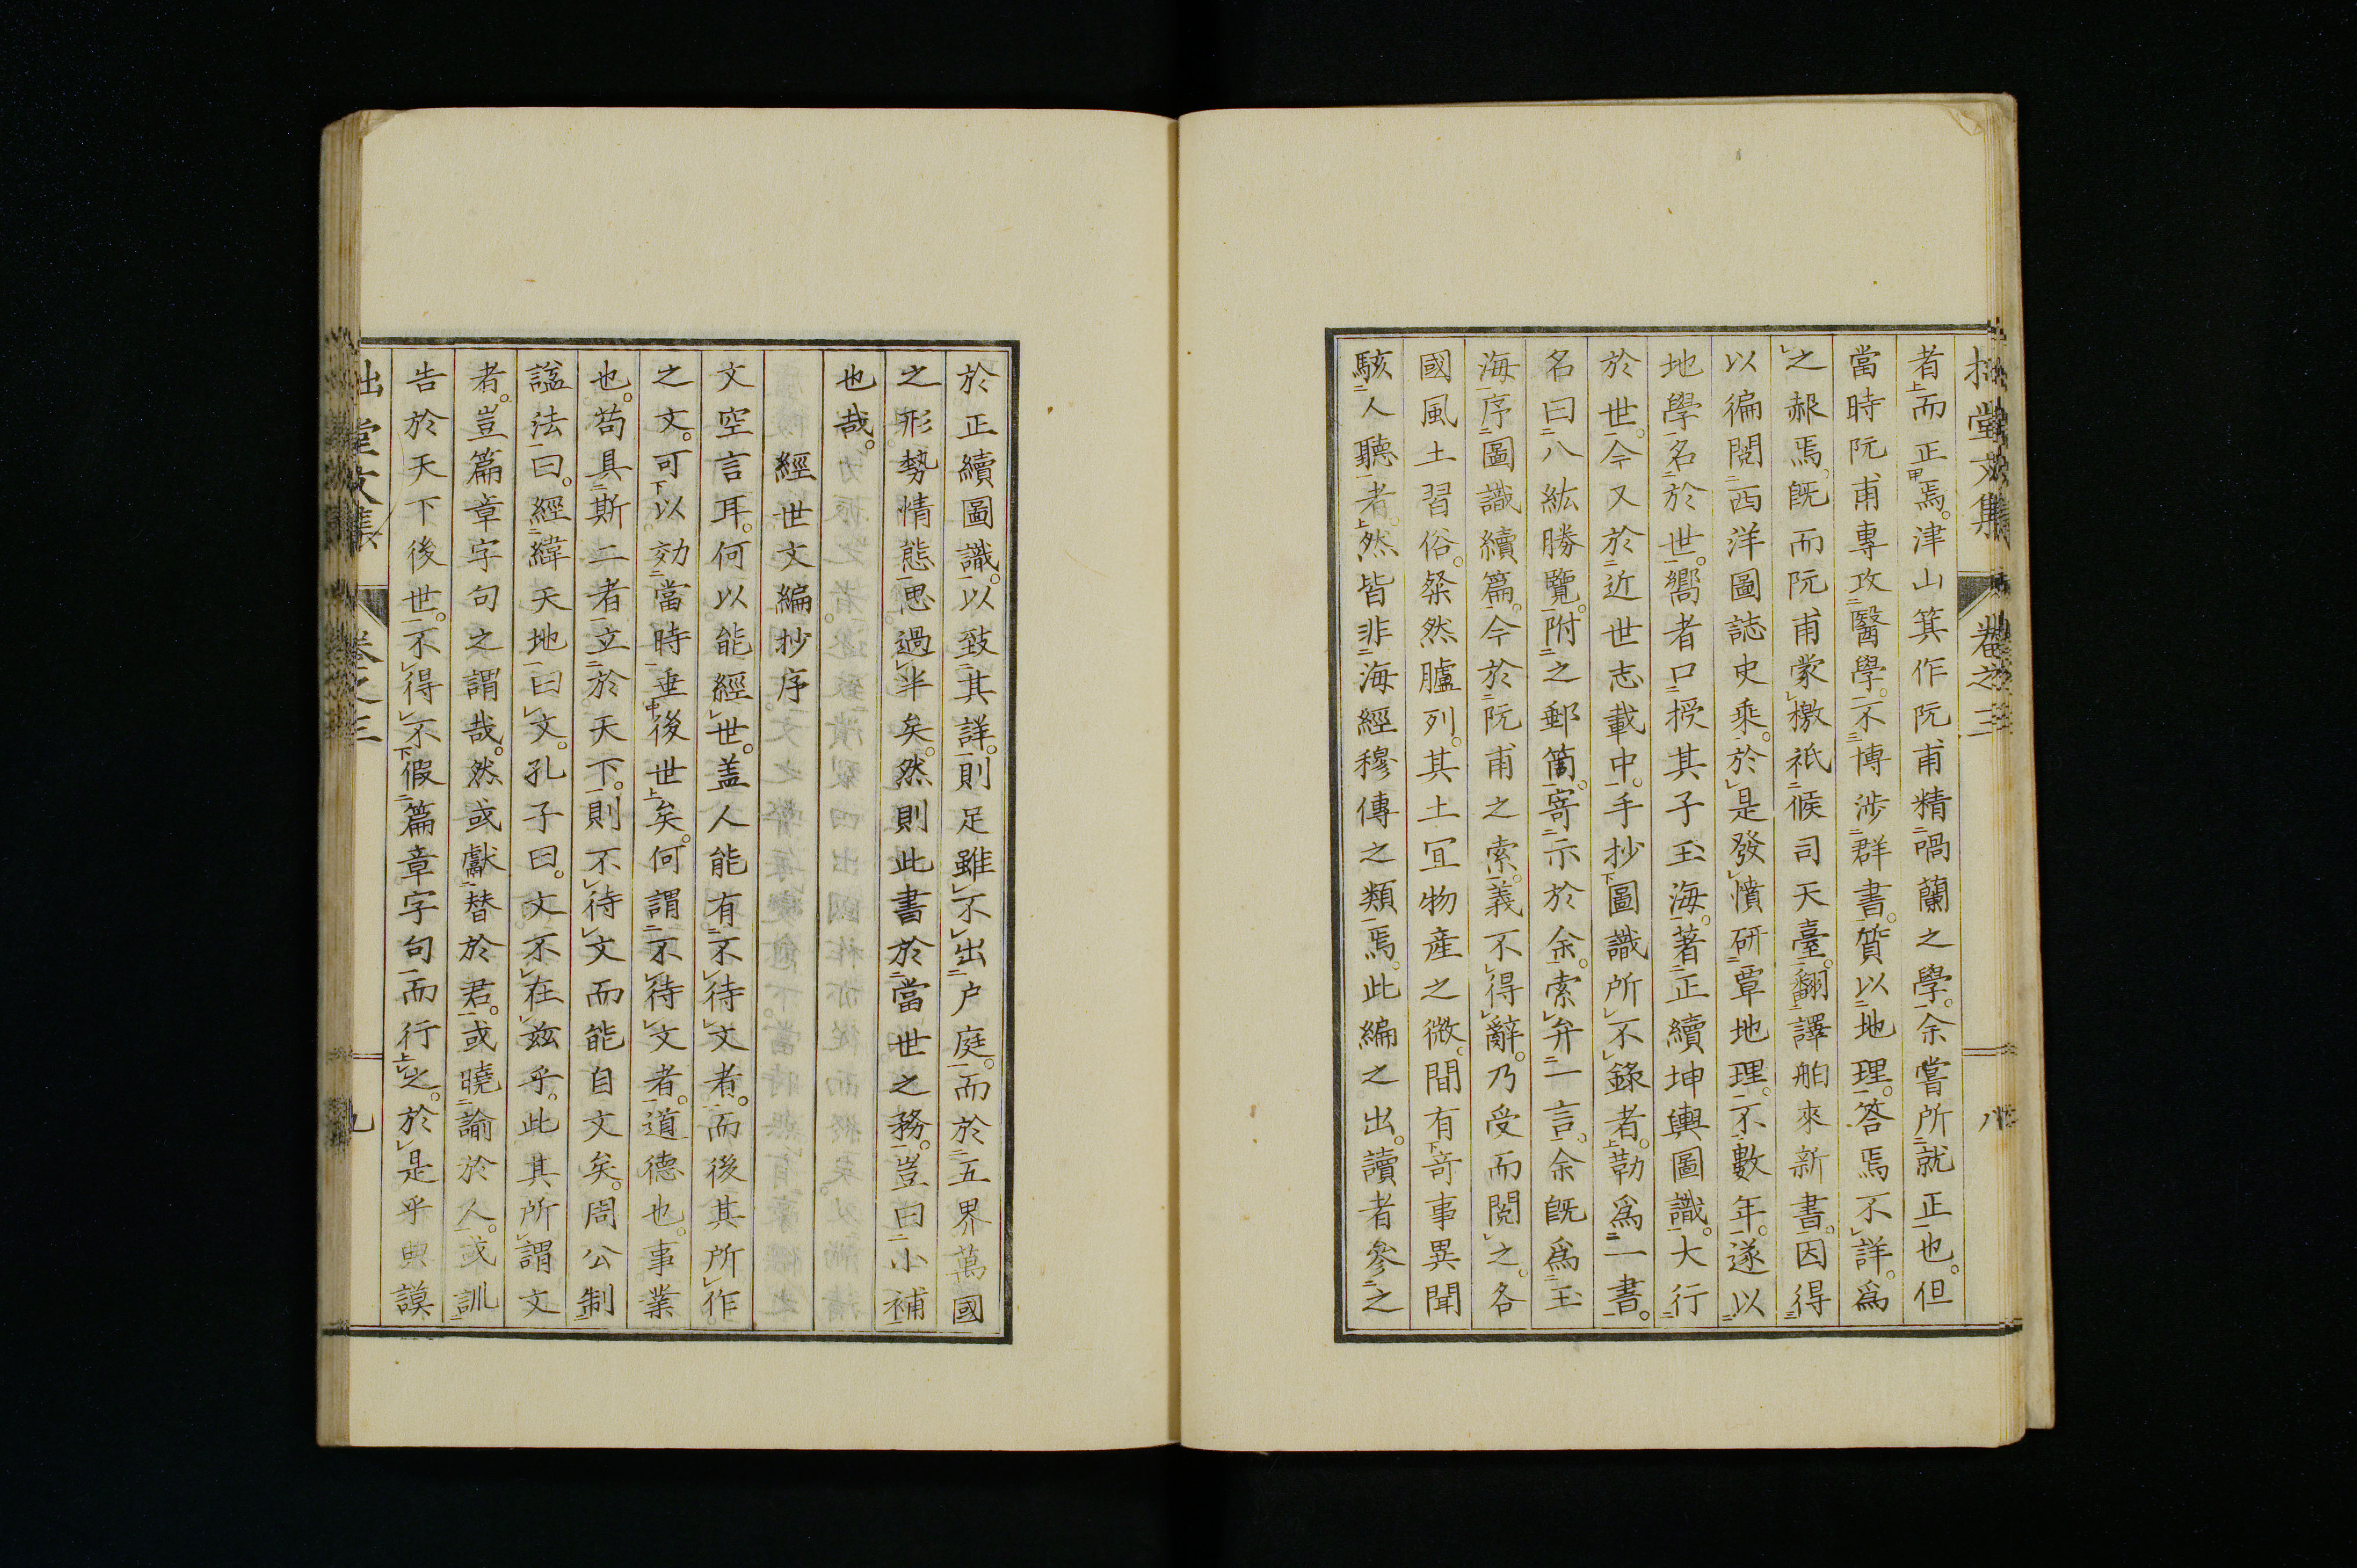 拙堂文集 卷之三 八
者而正焉。津山箕作阮甫精喎蘭之學。余嘗所就正也。但
當時阮甫專攻醫學。不博涉群書。質以地理。答焉不詳。爲
之赧焉。既而阮甫蒙檄祇候司天臺。翻譯舶來新書。因得
以徧閱西洋圖誌史乘。於是發憤研覃地理。不數年。遂以
地學名於世。嚮者口授其子玉海。著正續坤輿圖識。大行
於世。今又於近世志載中。手抄圖識所不錄者。勒爲一書。
名曰八紘勝覽。附之郵筩。寄示於余。索弁一言。余既爲玉
海序圖識續篇。今於阮甫之索。義不得辭。乃受而閱之。各
國風土習俗。粲然臚列。其土宜物產之微。間有奇事異聞
駭人聽者。然皆非海經穆傳之類焉。此編之出。讀者參之
於正續圖識。以致其詳。則足雖不出户庭。而於五界萬國
之形勢情態思過半矣。然則此書於當世之務。豈曰小補
也哉。
經世文編抄序
文空言耳。何以能經世。盖人能有不待文者。而後其所作
之文。可以効當時垂後世矣。何謂不待文者。道德也。事業
也。苟具斯二者立於天下。則不待文而能自文矣。周公制
謚法曰。經緯天地曰文。孔子曰。文不在茲乎。此其所謂文
者。豈篇章字句之謂哉。然或獻替於君。或曉諭於人。或訓
告於天下後世。不得不假篇章字句而行之。於是乎典謨
拙堂文集 卷之三 九